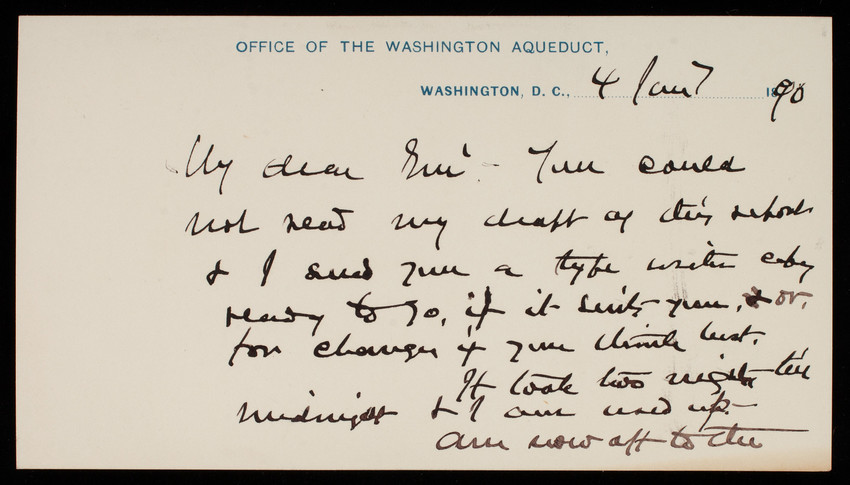 OFFICE OF THE WASHINGTON AQUEDUCT,
WASHINGTON, D. C., 4 Jan'y 1890
My dear Gen'l - You could
not read my draft of this report
& I send you a type writer copy
ready to go, if it suits you, & or,
for changes if you think best.
It took two nights till
midnight & I am used up -
Am now off to the